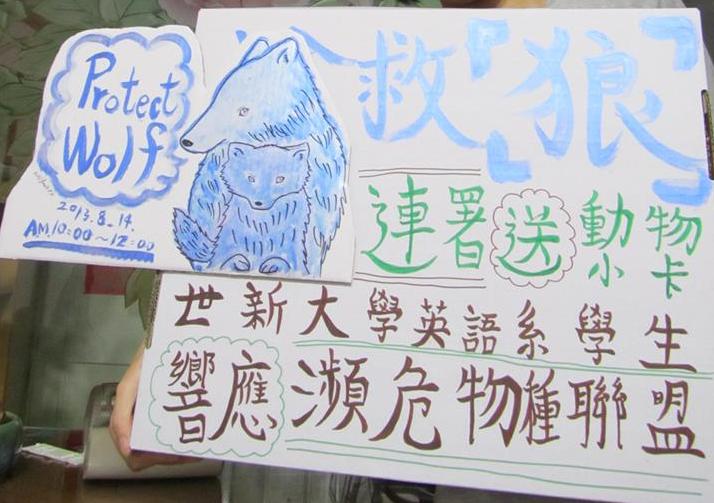 Protect
Wolf
2013.8.14.
AM.10:00~12:00
救『狼』
連署送動物小卡
世新大學英語系學生
響應瀕危物種聯盟